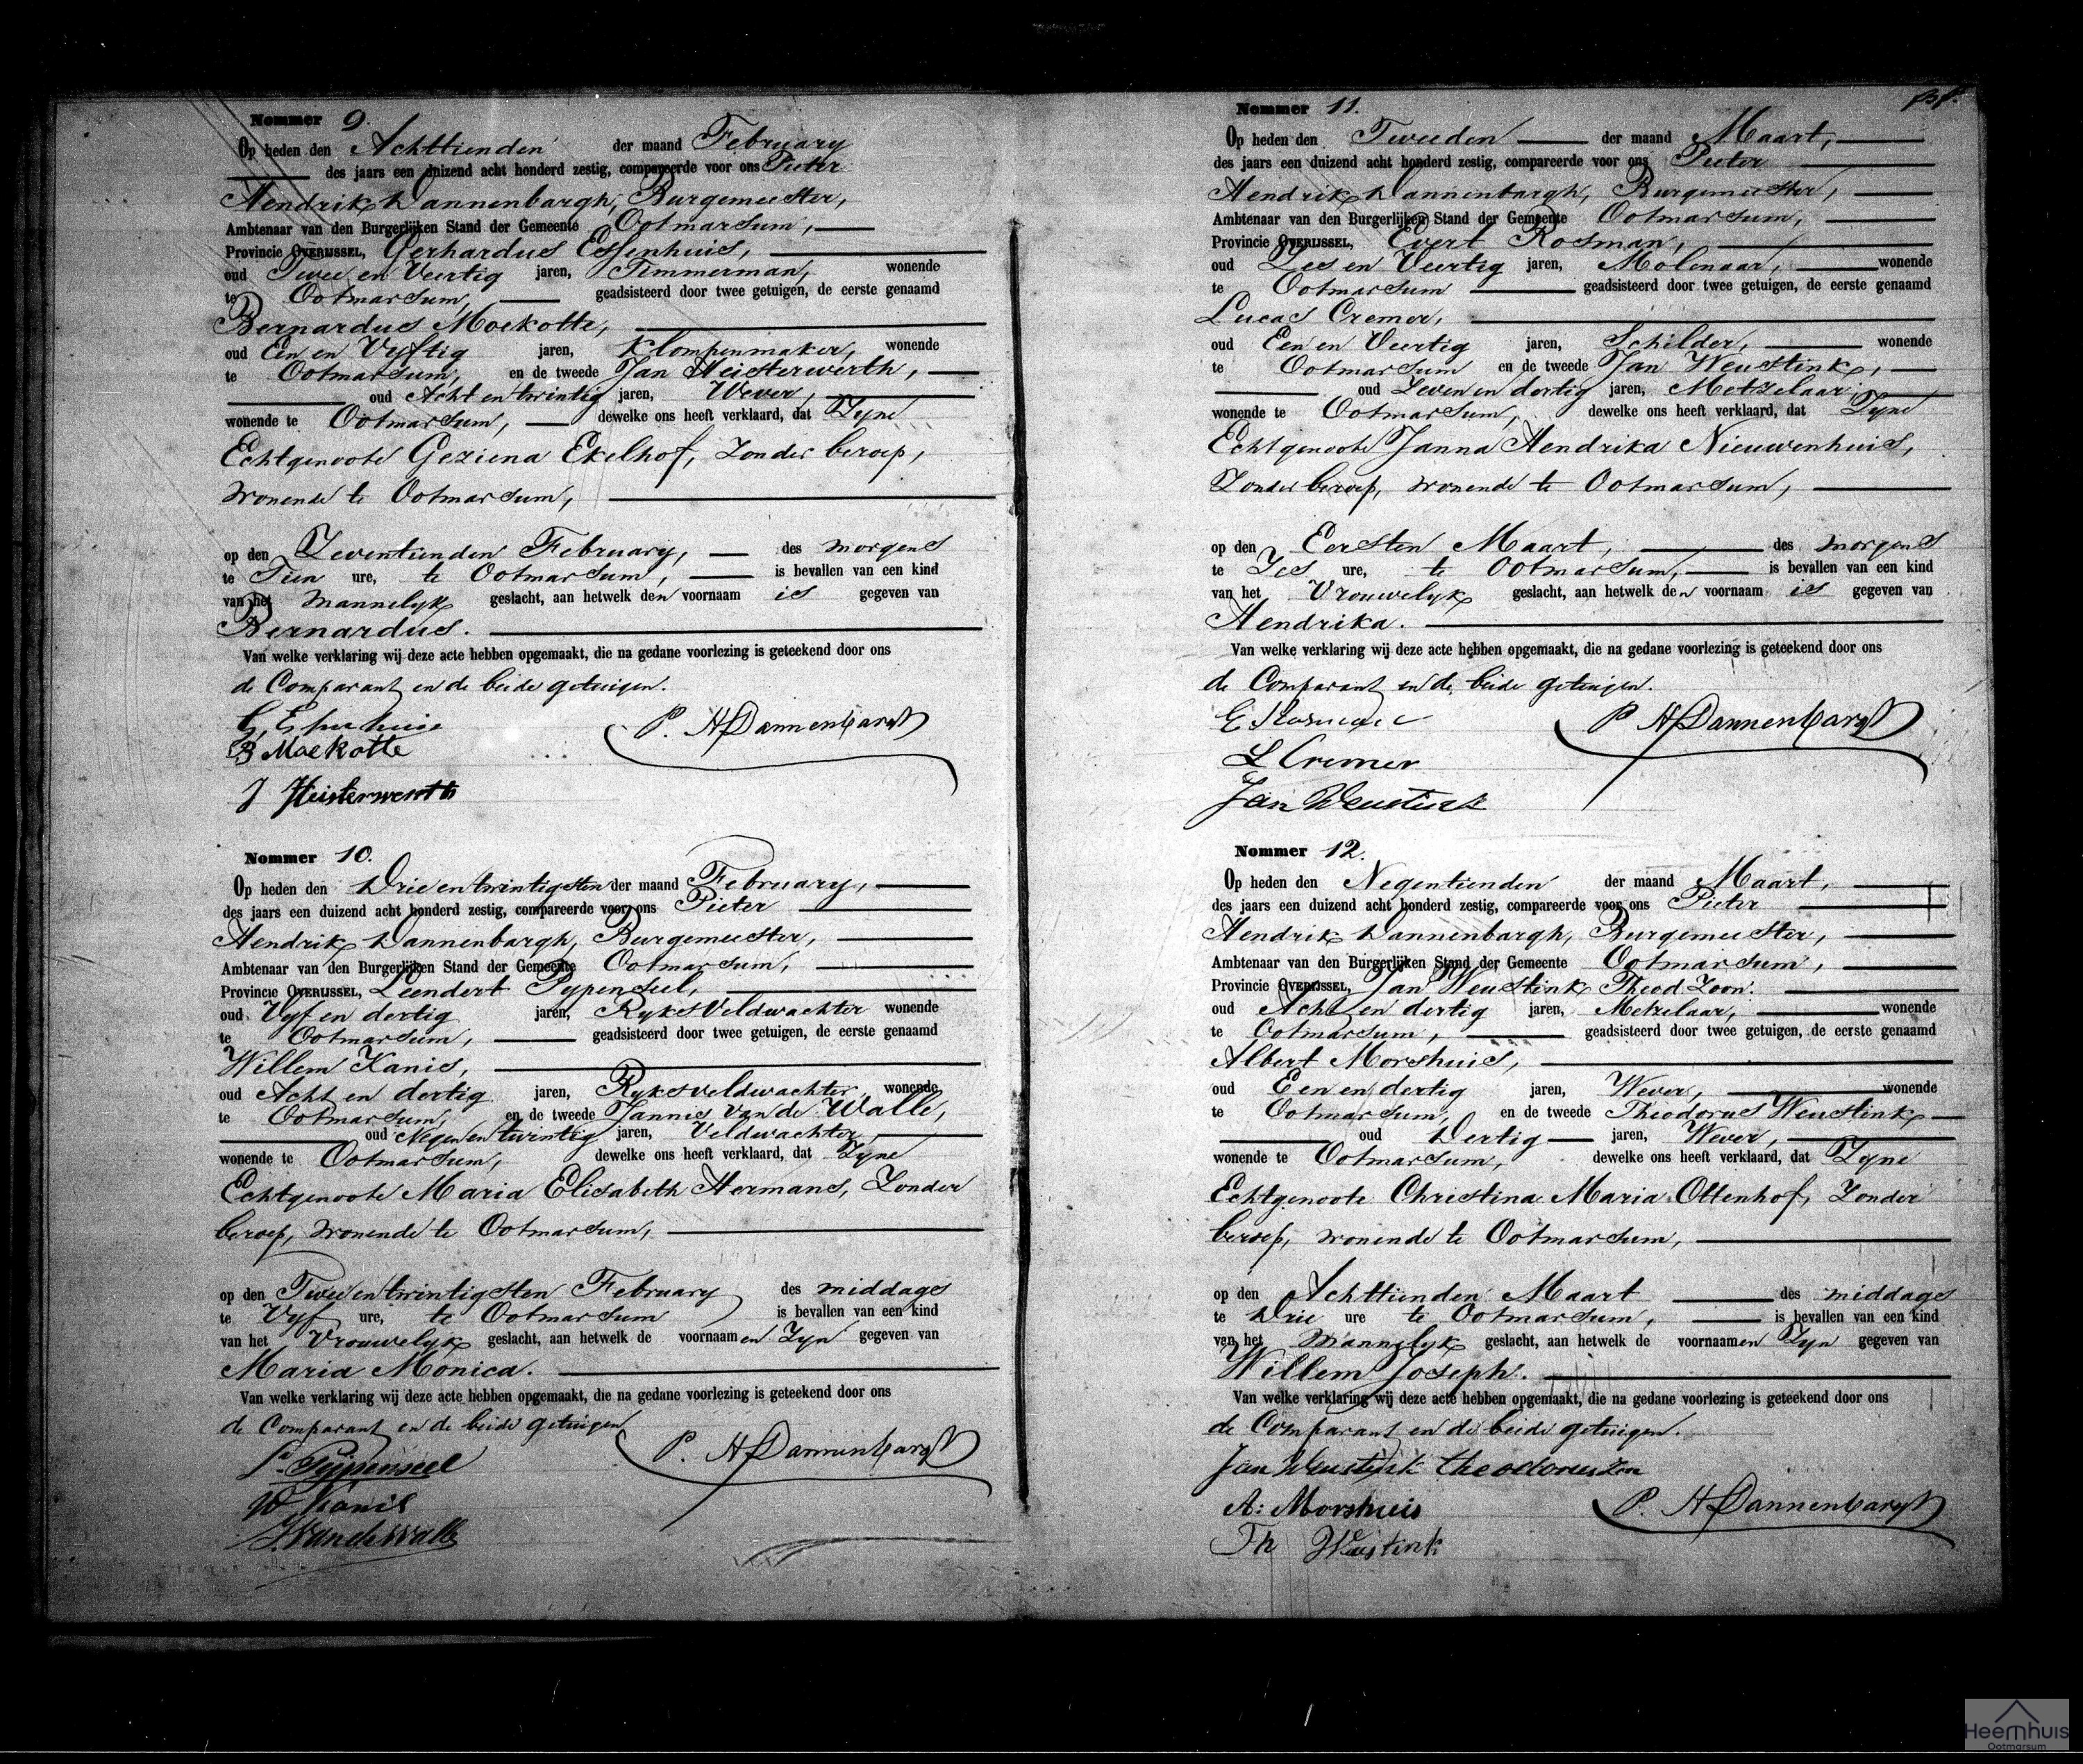 Nommer 9.
Op heden den Achttienden der maand February
des jaars een duizend acht honderd zestig, compareerde voor ons Pieter
Hendrik Dannenbargh, Burgemeester,
Ambtenaar van den Burgerlijken Stand der Gemeente Ootmarsum,
Provincie OVERIJSSEL, Gerhardus Essenhuis,
oud Twee en Veertig jaren, Timmerman, wonende
te Ootmarsum, geadsisteerd door twee getuigen, de eerste genaamd
Bernardus Moekotte,
oud Een en Vyftig jaren, Klompenmaker, wonende
te Ootmarsum, en de tweede Jan Heisterwerth,
oud Acht en twintig jaren, Wever,
wonende te Ootmarsum, dewelke ons heeft verklaard, dat Zyne
Echtgenoote Geziena Ekelhof, Zonder beroep,
wonende te Ootmarsum,
op den Zeventienden February, des morgens
te Tien ure, te Ootmarsum, is bevallen van een kind
van het Mannelyk geslacht, aan hetwelk den voornaam is gegeven van
Bernardus.
Van welke verklaring wij deze acte hebben opgemaakt, die na gedane voorlezing is geteekend door ons
de Comparant en de beide getuigen.
P. H Dannenbargh
B Moekotte
J Heisterwerth
Nommer 10.
Op heden den Drie en twintigsten der maand February,
des jaars een duizend acht honderd zestig, compareerde voor ons Pieter
Hendrik Dannenbargh, Burgemeester,
Ambtenaar van den Burgerlijken Stand der Gemeente Ootmarsum,
Provincie OVERIJSSEL, Leendert Pypenseel,
oud Vyf en dertig jaren, Ryksveldwachter wonende
te Ootmarsum, geadsisteerd door twee getuigen, de eerste genaamd
Willem Kanis,
oud Acht en dertig jaren, Ryksveldwachter, wonende
te Ootmarsum, en de tweede Jannis van de Walle,
oud Negen en twintig jaren, Veldwachter,
wonende te Ootmarsum, dewelke ons heeft verklaard, dat Zyne
Echtgenoote Maria Elisabeth Hermans, Zonder
beroep, wonende te Ootmarsum,
op den Twee en twintigsten February des middags
te Vyf ure, te Ootmarsum is bevallen van een kind
van het Vrouwelyk geslacht, aan hetwelk de voornaamen Zyn gegeven van
Maria Monica.
Van welke verklaring wij deze acte hebben opgemaakt, die na gedane voorlezing is geteekend door ons
de Comparant en de beide getuigen
Pijpenseel
P. H Dannenbargh
W Kanis
J. Van de Walle
Nommer 11.
Op heden den Tweeden der maand Maart,
des jaars een duizend acht honderd zestig, compareerde voor ons Pieter
Hendrik Dannenbargh, Burgemeester,
Ambtenaar van den Burgerlijken Stand der Gemeente Ootmarsum,
Provincie OVERIJSSEL, Evert Rosman,
oud Zes en Veertig jaren, Molenaar, wonende
te Ootmarsum geadsisteerd door twee getuigen, de eerste genaamd
Lucas Cremer,
oud Een en Veertig jaren, Schilder, wonende
te Ootmarsum en de tweede Jan Weustink,
oud Zeven en dertig jaren, Metzelaar,
wonende te Ootmarsum, dewelke ons heeft verklaard, dat Zyne
Echtgenoote Janna Hendrika Nieuwenhuis,
Zonder beroep, wonende te Ootmarsum,
op den Eersten Maart, des morgens
te Zes ure, te Ootmarsum, is bevallen van een kind
van het Vrouwelyk geslacht, aan hetwelk den voornaam is gegeven van
Hendrika.
Van welke verklaring wij deze acte hebben opgemaakt, die na gedane voorlezing is geteekend door ons
de Comparant en de beide getuigen.
E Rosman
P H Dannenbargh
L Cremer
Jan Weustink
Nommer 12.
Op heden den Negentienden der maand Maart,
des jaars een duizend acht honderd zestig, compareerde voor ons Pieter
Hendrik Dannenbargh, Burgemeester,
Ambtenaar van den Burgerlijken Stand der Gemeente Ootmarsum,
Provincie OVERIJSSEL, Jan Weustink Theod. Zoon.
oud Acht en dertig jaren, Metzelaar, wonende
te Ootmarsum, geadsisteerd door twee getuigen, de eerste genaamd
Albert Morshuis,
oud Een en dertig jaren, Wever, wonende
te Ootmarsum, en de tweede Theodorus Weustink
oud Dertig jaren, Wever,
wonende te Ootmarsum, dewelke ons heeft verklaard, dat Zyne
Echtgenoote Christina Maria Ottenhof, Zonder
beroep, wonende te Ootmarsum,
op den Achttienden Maart des middags
te Drie ure te Ootmarsum, is bevallen van een kind
van het Mannelyk geslacht, aan hetwelk de voornaamen Zyn gegeven van
Willem Joseph.
Van welke verklaring wij deze acte hebben opgemaakt, die na gedane voorlezing is geteekend door ons
de Comparant en de beide getuigen.
Jan Weustink Theodoruszon
A: Morshuis
P. H Dannenbargh
Th Weustink
Heemhuis
Ootmarsum